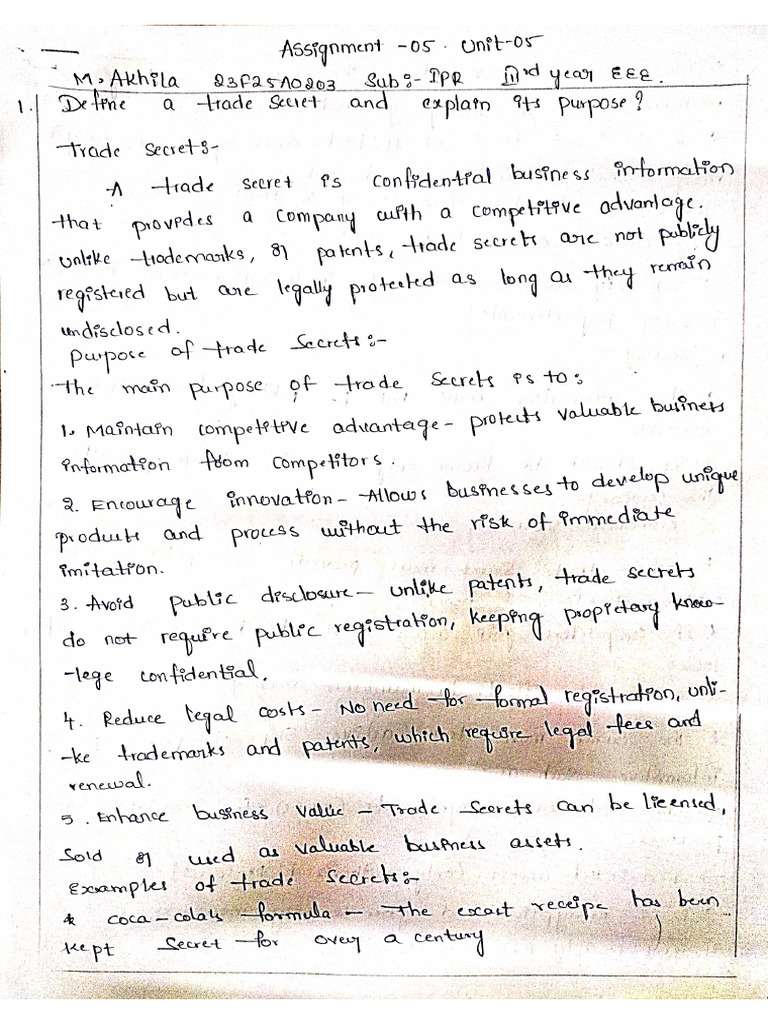 Assignment -05. Unit-05
M. Akhila 23F25A0203 Sub:- IPR IIIrd year EEE.
1. Define a trade secret and explain its purpose?
Trade Secret:-
A trade secret is confidential business information
that provides a company with a competitive advantage.
unlike trademarks, or patents, trade secrets are not publicly
registered but are legally protected as long as they remain
undisclosed.
Purpose of trade Secrets:-
The main purpose of trade secrets is to:
1. Maintain competitive advantage - protects valuable business
information from competitors.
2. Encourage innovation - Allows businesses to develop unique
products and process without the risk of immediate
imitation.
3. Avoid public disclosure - unlike patents, trade secrets
do not require public registration, keeping propietary know-
-lege confidential.
4. Reduce legal costs - No need for formal registration, unli-
-ke trademarks and patents, which require legal fees and
renewal.
5. Enhance business value - Trade Secrets can be licensed,
Sold or used as valuable business assets.
Examples of trade secrets:-
* coca-cola's formula - The exact receipe has been
kept Secret for over a century